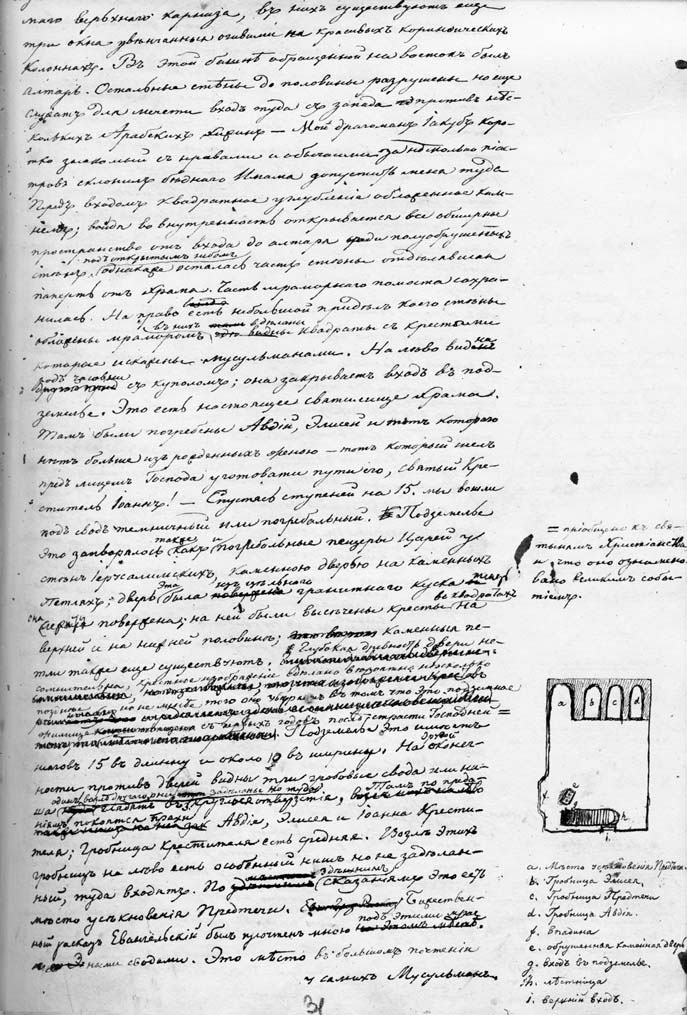 маго верхняго карниза, въ нихъ существуютъ еще
три окна увѣнчанныя огивами на красивыхъ коринѳическихъ
колоннахъ. Въ этой башнѣ обращенной на востокъ былъ
алтарь. Остальныя стѣны до половины разрушены но еще
служатъ для мечети входъ туда съ запада противъ нѣс-
колькихъ Арабскихъ хижинъ — Мой драгоманъ Якубъ коро-
тко знакомый съ нравами и обычаями за несколько піас-
тровъ склонилъ бѣднаго Имама допустить меня туда
Предъ входомъ квадратное углубленіе обложенное кам-
немъ; войдя во внутренность открывается все обширные
пространство отъ входа до алтаря среди полуобрушенныхъ
подъ открытымъ небомъ
стѣнъ, однакоже осталась часть стѣны отдѣлявшая
паперть отъ храма. Часть мраморнаго помоста сохра-
нилась. На право есть небольшой придѣлъ коего стѣны
въ нихъ вделаны
обложены мраморомъ видны квадраты съ крестами
которые искажены мусульманами. На лѣво видѣнъ
родъ часовни
съ куполомъ; она закрываетъ входъ въ под-
земелье. Это есть настоящее святилище храма.
Тамъ были погребены Авдій, Элисей и тотъ котораго
нѣтъ больше изъ рожденныхъ женою — тотъ который шелъ
предъ лицемъ Господа уготовати пути его, святый Кре-
ститель Іоаннъ! — Спустясь ступеней на 15. мы вошли
подъ сводъ темничный или погребальный. Подземелье
также и
это затворялось какъ погребольные пещеры Царей у
стѣнъ Іерусалимскихъ, каменною дверью на каменныхъ
петляхъ; дверь эта была изъ цѣльнаго гранитнаго куска
въ квадратахъ
повержена; на ней были высѣчены кресты на
верхней и на нижней половинѣ; каменныя пе-
тли также еще существуютъ. Глубокая древность двери не-
сомнительна, крестное изображеніе вделано вѣроятно несколько
позднѣе но не менѣе того они увѣрили въ томъ что это подземное
съ первыхъ годовъ послѣ страсти Господней =
Подземелье это имѣетъ
шаговъ 15 въ длинну и около 10 въ ширину. На оконеч-
ности противъ дверей видны три гробовые свода или ни-
ша одинъ возлѣ другаго задѣланы но туда
глядятъ въ круглыя отверзтія, Тамъ по преда-
ніямъ покоятся прахи Авдія, Элисея и Іоанна Крести-
теля; Гробница Крестителя есть средняя. Возлѣ этихъ
гробницъ на лѣво есть особенный нишъ но не задѣлан-
ный, туда входятъ. По здѣшнимъ сказаніямъ это есть
мѣсто усѣкновенія Предтечи. Божествен-
ный разсказъ Евангельскій былъ прочтенъ мною подъ этими мрач-
ными сводами. Это мѣсто въ большомъ почтеніи
у самихъ Мусульманъ.
31
= пріобщено къ свя-
тынямъ Христіанства
и что оно ознамено-
вано великимъ собы-
тіемъ.
a b c d
f. e
g h
i.
a. Мѣсто усѣкновенія Предтечи.
b. Гробница Элисея.
c. Гробница Предтечи
d. Гробница Авдія.
f. Впадина
e. обрушенная каменная дверь
g. входъ въ подземелье.
h. лѣстница
i. верхній входъ.